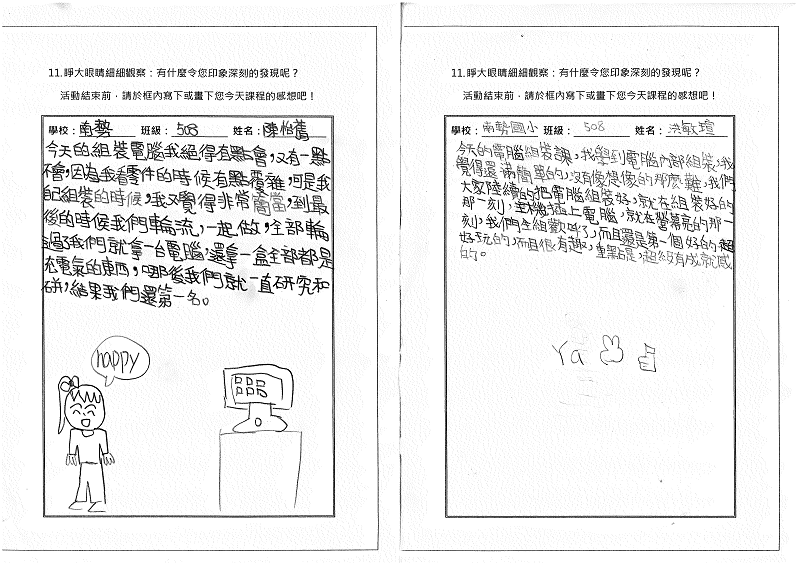 11.睜大眼睛細細觀察：有什麼令您印象深刻的發現呢？
活動結束前，請於框內寫下或畫下您今天課程的感想吧！
學校：南勢 班級：508 姓名：陳怡蒨
今天的組裝電腦我絕得有點會，又有一點
不會，因為我看零件的時候有點覆雜，可是我
配組裝的時候，我又覺得非常簡當，到最
後的時候我們輪流，一起做，全部輪
過了我們就拿一台電腦，還拿一盒全部都是
充電氣的東西，哪後我們就一直研究和
研，結果我們還第一名。
happy
11.睜大眼睛細細觀察：有什麼令您印象深刻的發現呢？
活動結束前，請於框內寫下或畫下您今天課程的感想吧！
學校：南勢國小 班級：508 姓名：洪敏瑄
今天的電腦組裝課，我學到電腦內部組裝，我
覺得還滿簡單的，沒有像想像的那麼難，我們
大家陸續的把電腦組裝好，就在組裝好的
那一刻，主機插上電腦，就在螢幕亮的那一
刻，我們全組歡呼了，而且還是第一個好的，超
好玩的，而且很有趣，重點是，超級有成就感
的。
Ya